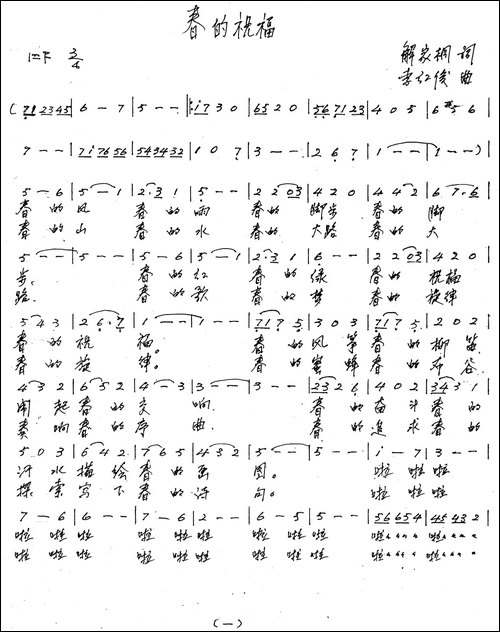 春的祝福
1=F 3/4 解家桐 词
李红俊 曲
( 71 2345 | 6 - 7 | 5 - - |: i 7 3 0 | 65 2 0 | 56 71 23 | 4 0 5 | 6 #5 6 |
7 - - | 7i 76 56 | 54 34 32 | 1 0 7 | 3 - - | 2 6 7 | 1 - - | 1 - - )
5 - 6 | 5 - 1 | 2·3 1 | 5 - - | 2 2 03 | 4 2 0 | 4 4 2 | 6 7·6 |
春的风 春的雨 春的脚步 春的脚
春的山 春的水 春的大路 春的大
5 - - | 5 - - | 5 - 6 | 5 - 1 | 2·3 1 | 6 - - | 2 2 03 | 4 2 0 |
步。 春的红 春的绿 春的祝福
路。 春的歌 春的梦 春的旋律
5 4 3 | 2 6·7 | 1 - - | 1 - - | 71 7 5 | 3 0 3 | 71 7 5 | 2 0 2 |
春的祝福。 春的风筝 春的柳笛
春的旋律。 春的蜜蜂 春的布谷
4 3 2 | 6 5 2 | 4 - 3 | 3 - - | 3 - - | 23 2 6 | 4 0 2 | 34 3 1 |
闹起春的交响 春的奋斗 春的
奏响春的序曲 春的追求 春的
5 0 3 | 6 4 2 | 7 6 5 | 4 3 2 | 5 - - | 5 - - | i - 7 | 3 - - |
汗水描绘春的画图。 啦啦啦
探索写下春的诗句。 啦啦啦
7 - 6 | 6 - - | 7 - 6 | 2 - - | 6 - 5 | 5 - - | 56 66 54 | 45 43 2 |
啦啦啦 啦啦啦 啦啦啦 啦
啦啦啦 啦啦啦 啦啦啦 啦
(一)